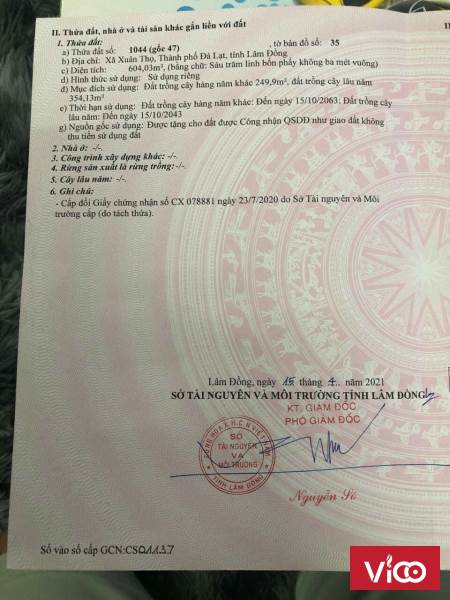 II. Thửa đất, nhà ở và tài sản khác gắn liền với đất
1. Thửa đất:
a) Thửa đất số: 1044 (gốc 47) , tờ bản đồ số: 35
b) Địa chỉ: Xã Xuân Thọ, Thành phố Đà Lạt, tỉnh Lâm Đồng
c) Diện tích: 604,03m², (bằng chữ: Sáu trăm linh bốn phẩy không ba mét vuông)
d) Hình thức sử dụng: Sử dụng riêng
đ) Mục đích sử dụng: Đất trồng cây hàng năm khác 249,9m², đất trồng cây lâu năm
354,13m²
e) Thời hạn sử dụng: Đất trồng cây hàng khác: Đến ngày 15/10/2063; Đất trồng cây
lâu năm: Đến ngày 15/10/2043
g) Nguồn gốc sử dụng: Được tặng cho đất được Công nhận QSDĐ như giao đất không
thu tiền sử dụng đất
2. Nhà ở: -/-
3. Công trình xây dựng khác: -/-
4. Rừng sản xuất là rừng trồng: -/-
5. Cây lâu năm: -/-
6. Ghi chú:
- Cấp đổi Giấy chứng nhận số CX 078881 ngày 23/7/2020 do Sở Tài nguyên và Môi
trường cấp (do tách thửa).
Lâm Đồng, ngày 15 tháng 4.. năm 2021
SỞ TÀI NGUYÊN VÀ MÔI TRƯỜNG TỈNH LÂM ĐỒNG
KT. GIÁM ĐỐC
PHÓ GIÁM ĐỐC
SỞ
TÀI NGUYÊN
VÀ
MÔI TRƯỜNG
TỈNH LÂM ĐỒNG
Số vào sổ cấp GCN:CS01137
Vico